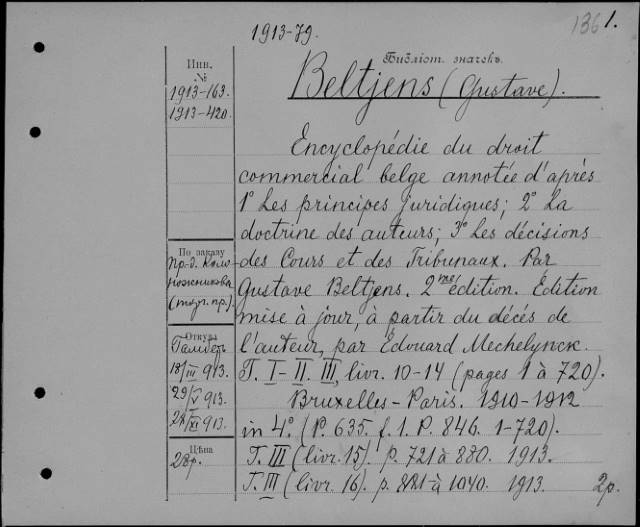 1913-79.
1361.
Библіот. значекъ.
Инв.
№
1913-163.
1913-420.
Beltjens (Gustave).
Encyclopédie du droit
commercial belge annotée d'après
1° Les principes juridiques; 2° La
doctrine des auteurs; 3° Les décisions
des Cours et des Tribunaux. Par
Gustave Beltjens. 2me édition. Édition
mise à jour, à partir du décés de
l'auteur, par Édouard Mechelynck.
T. I-II. III, livr. 10-14 (pages 1 à 720).
Bruxelles-Paris. 1910-1912
in 4°. (P. 635. f. 1. P. 846. 1-720).
T. III (livr. 15). p. 721 à 880. 1913.
T. III (livr. 16). p. 881-à 1040. 1913. 2р.
По заказу
пр-д.
(торг. пр.)
Откуда
18/III 913.
29/V 913.
24/XI 913.
Цѣна
28р.